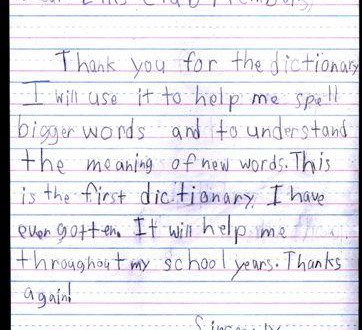 Elks Club Members,
Thank you for the dictionary
I will use it to help me spell
bigger words and to understand
the meaning of new words. This
is the first dictionary I have
ever gotten. It will help me
throughout my school years. Thanks
again!
Sincerely